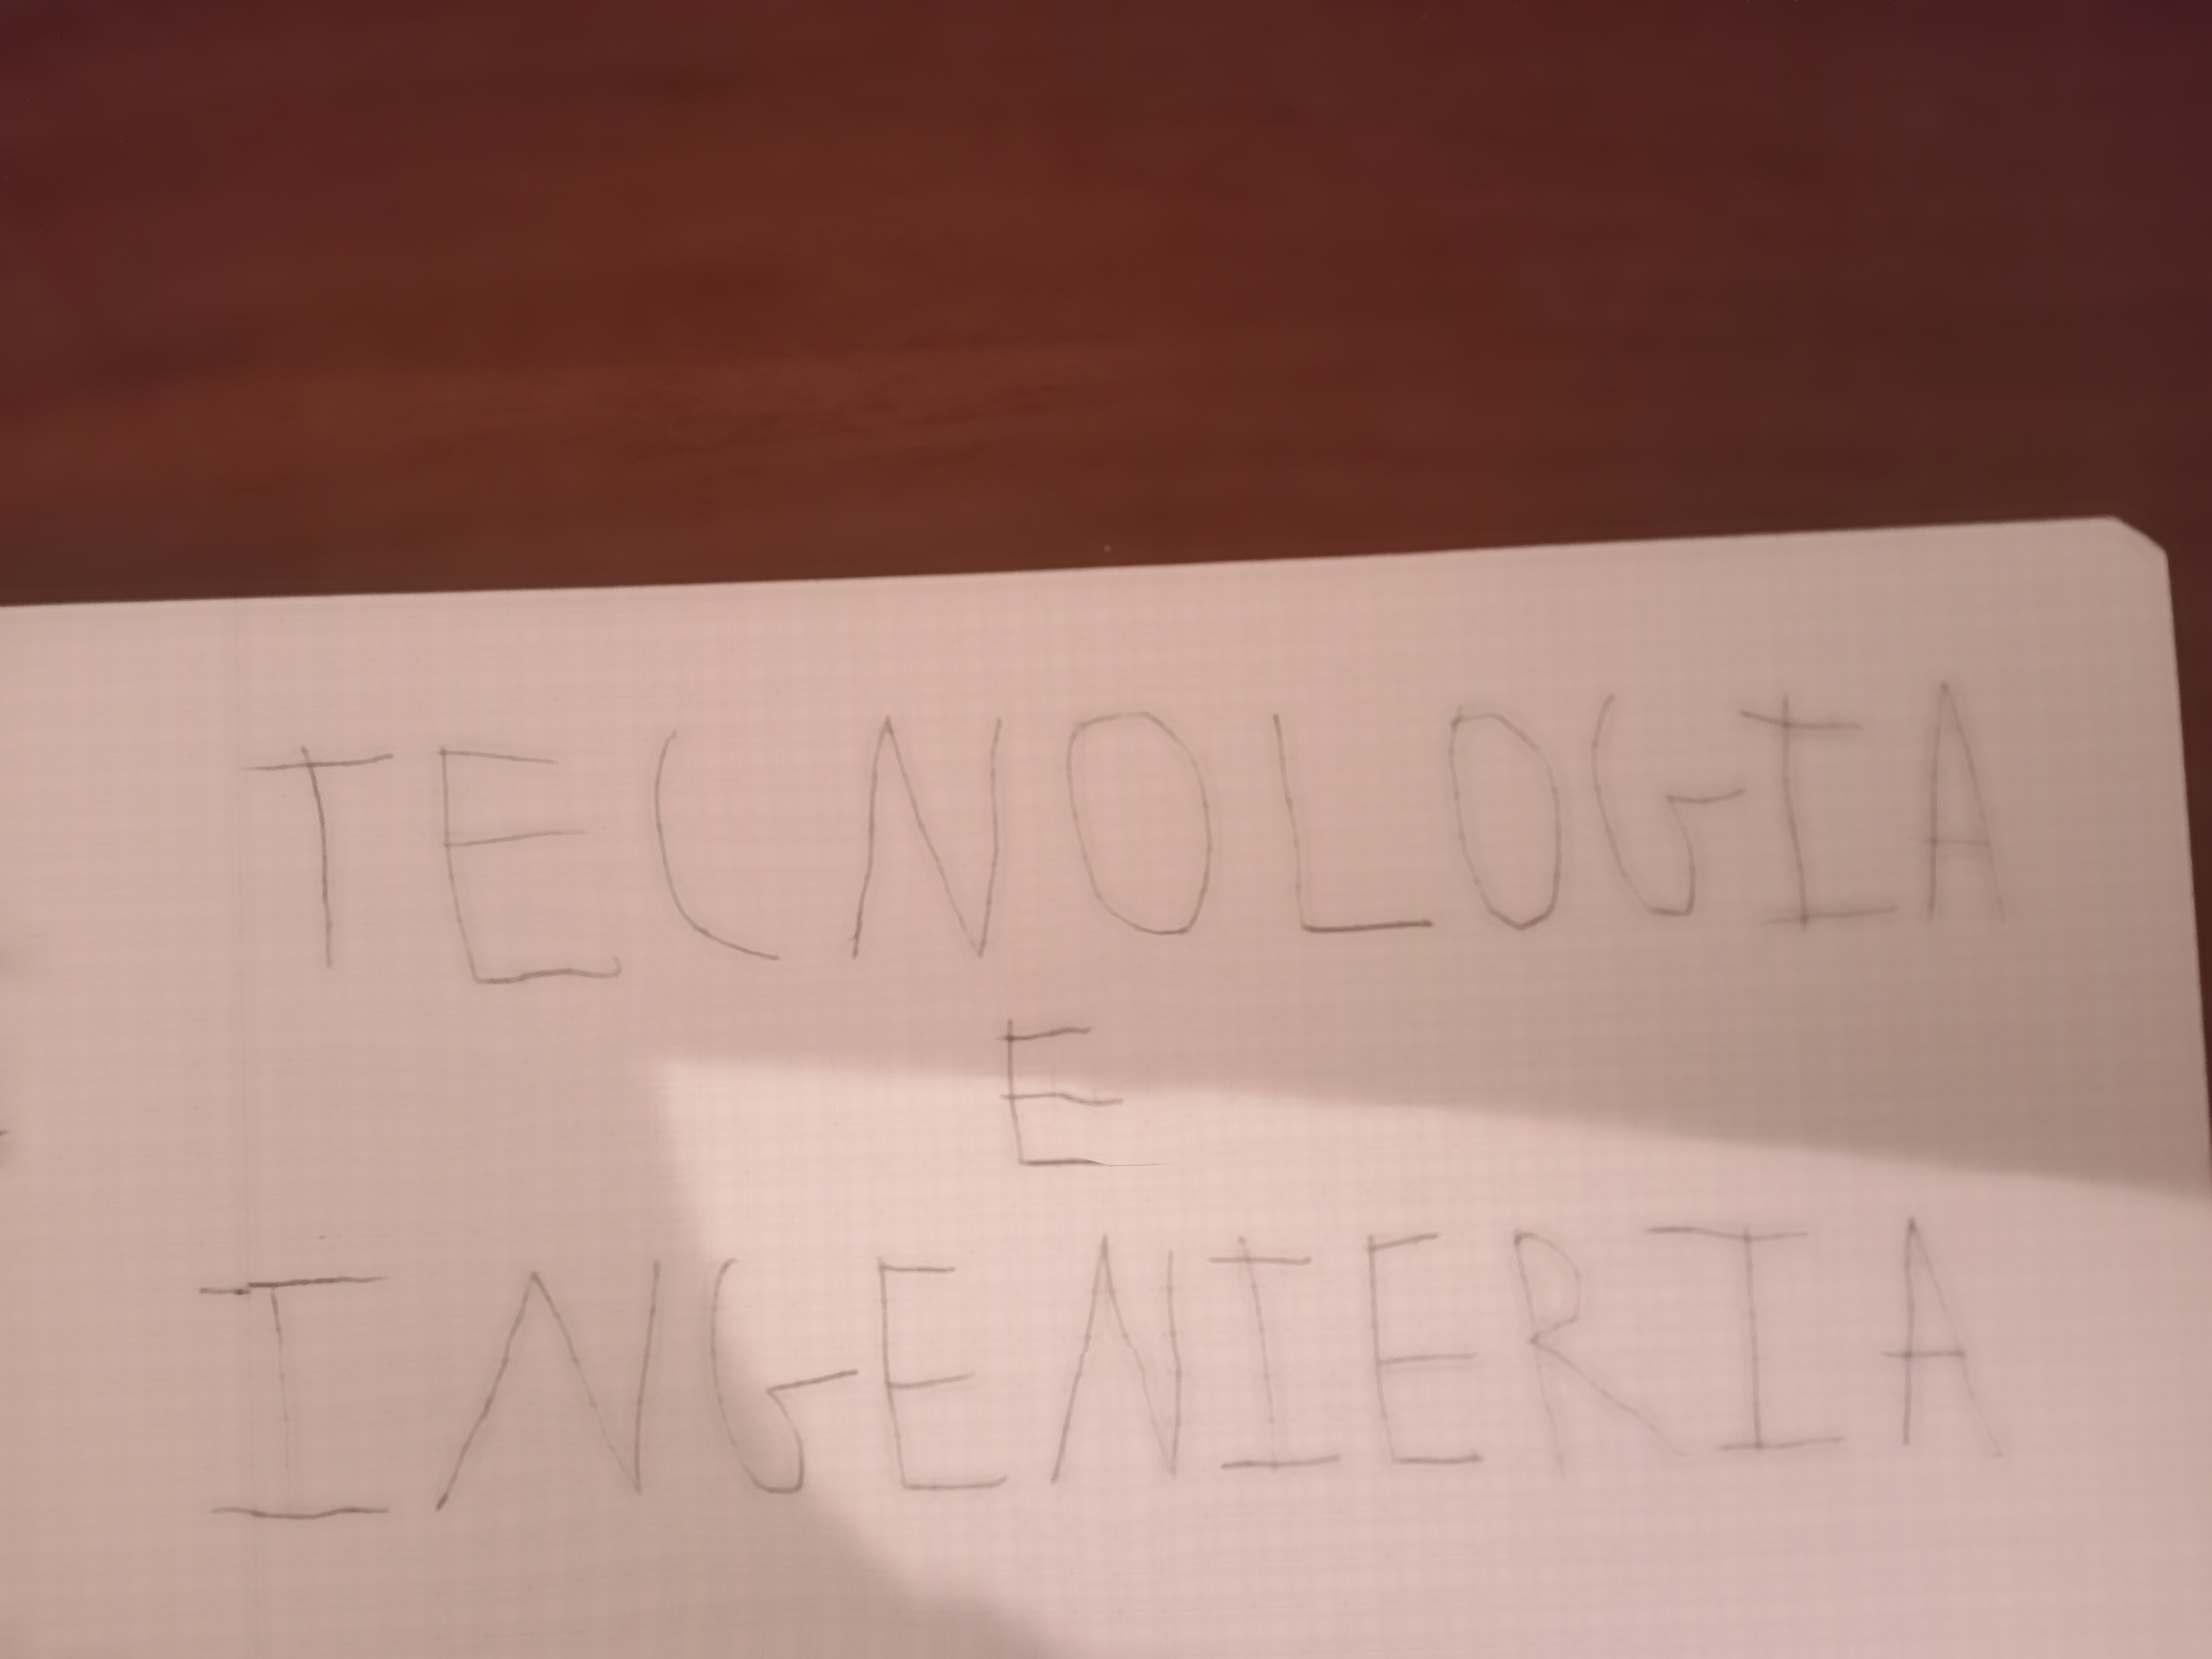 TECNOLOGIA
E
INGENIERIA